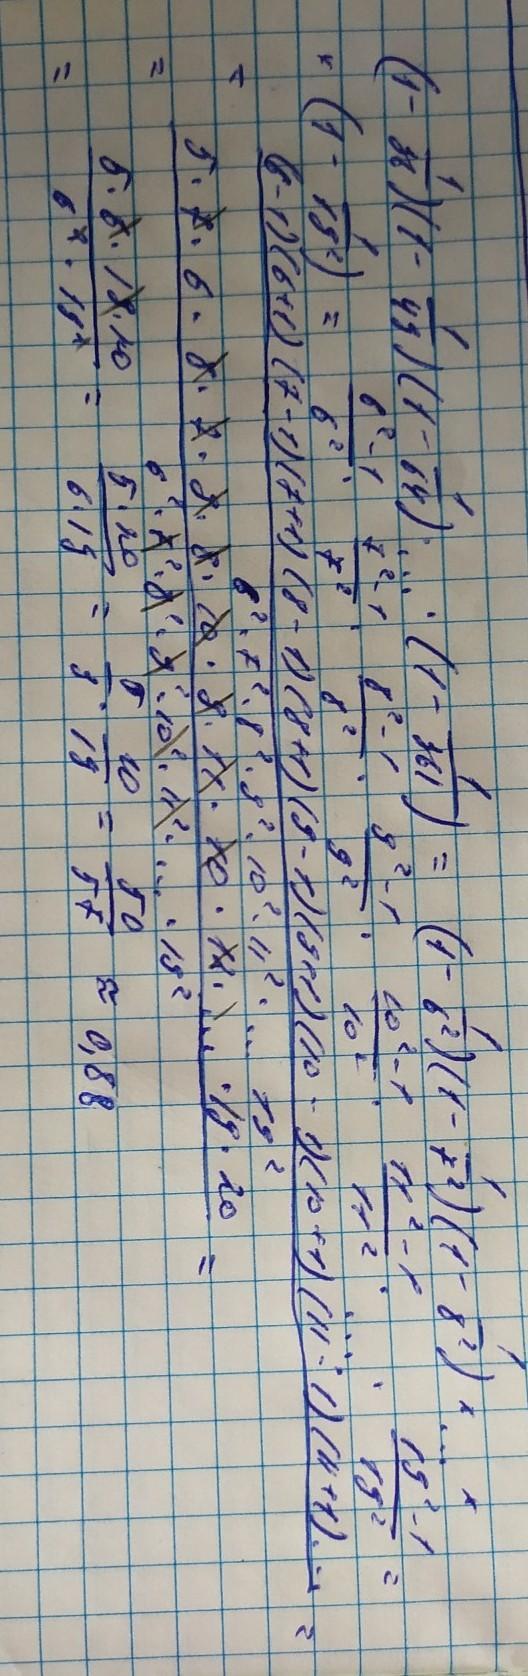 (1 - 1/36)(1 - 1/49)(1 - 1/64)· ... · (1 - 1/361) = (1 - 1/6²)(1 - 1/7²)(1 - 1/8²) × ... ×
× (1 - 1/19²) = (6²-1)/6² · (7²-1)/7² · (8²-1)/8² · (9²-1)/9² · (10²-1)/10² · (11²-1)/11² · ... · (19²-1)/19² =
(6-1)(6+1)(7-1)(7+1)(8-1)(8+1)(9-1)(9+1)(10-1)(10+1)(11-1)(11+1)... =
6²·7²·8²·9²·10²·11²· ... 19²
5·7·6·8·7·9·8·10·9·11·10·12· ... ·19·20 =
6²·7²·8²·9²·10²·11²· ... ·19²
= (5·6·19·20)/(6²·19²) = (5·20)/(6·19) = 5/3 · 10/19 = 50/57 ≈ 0,88